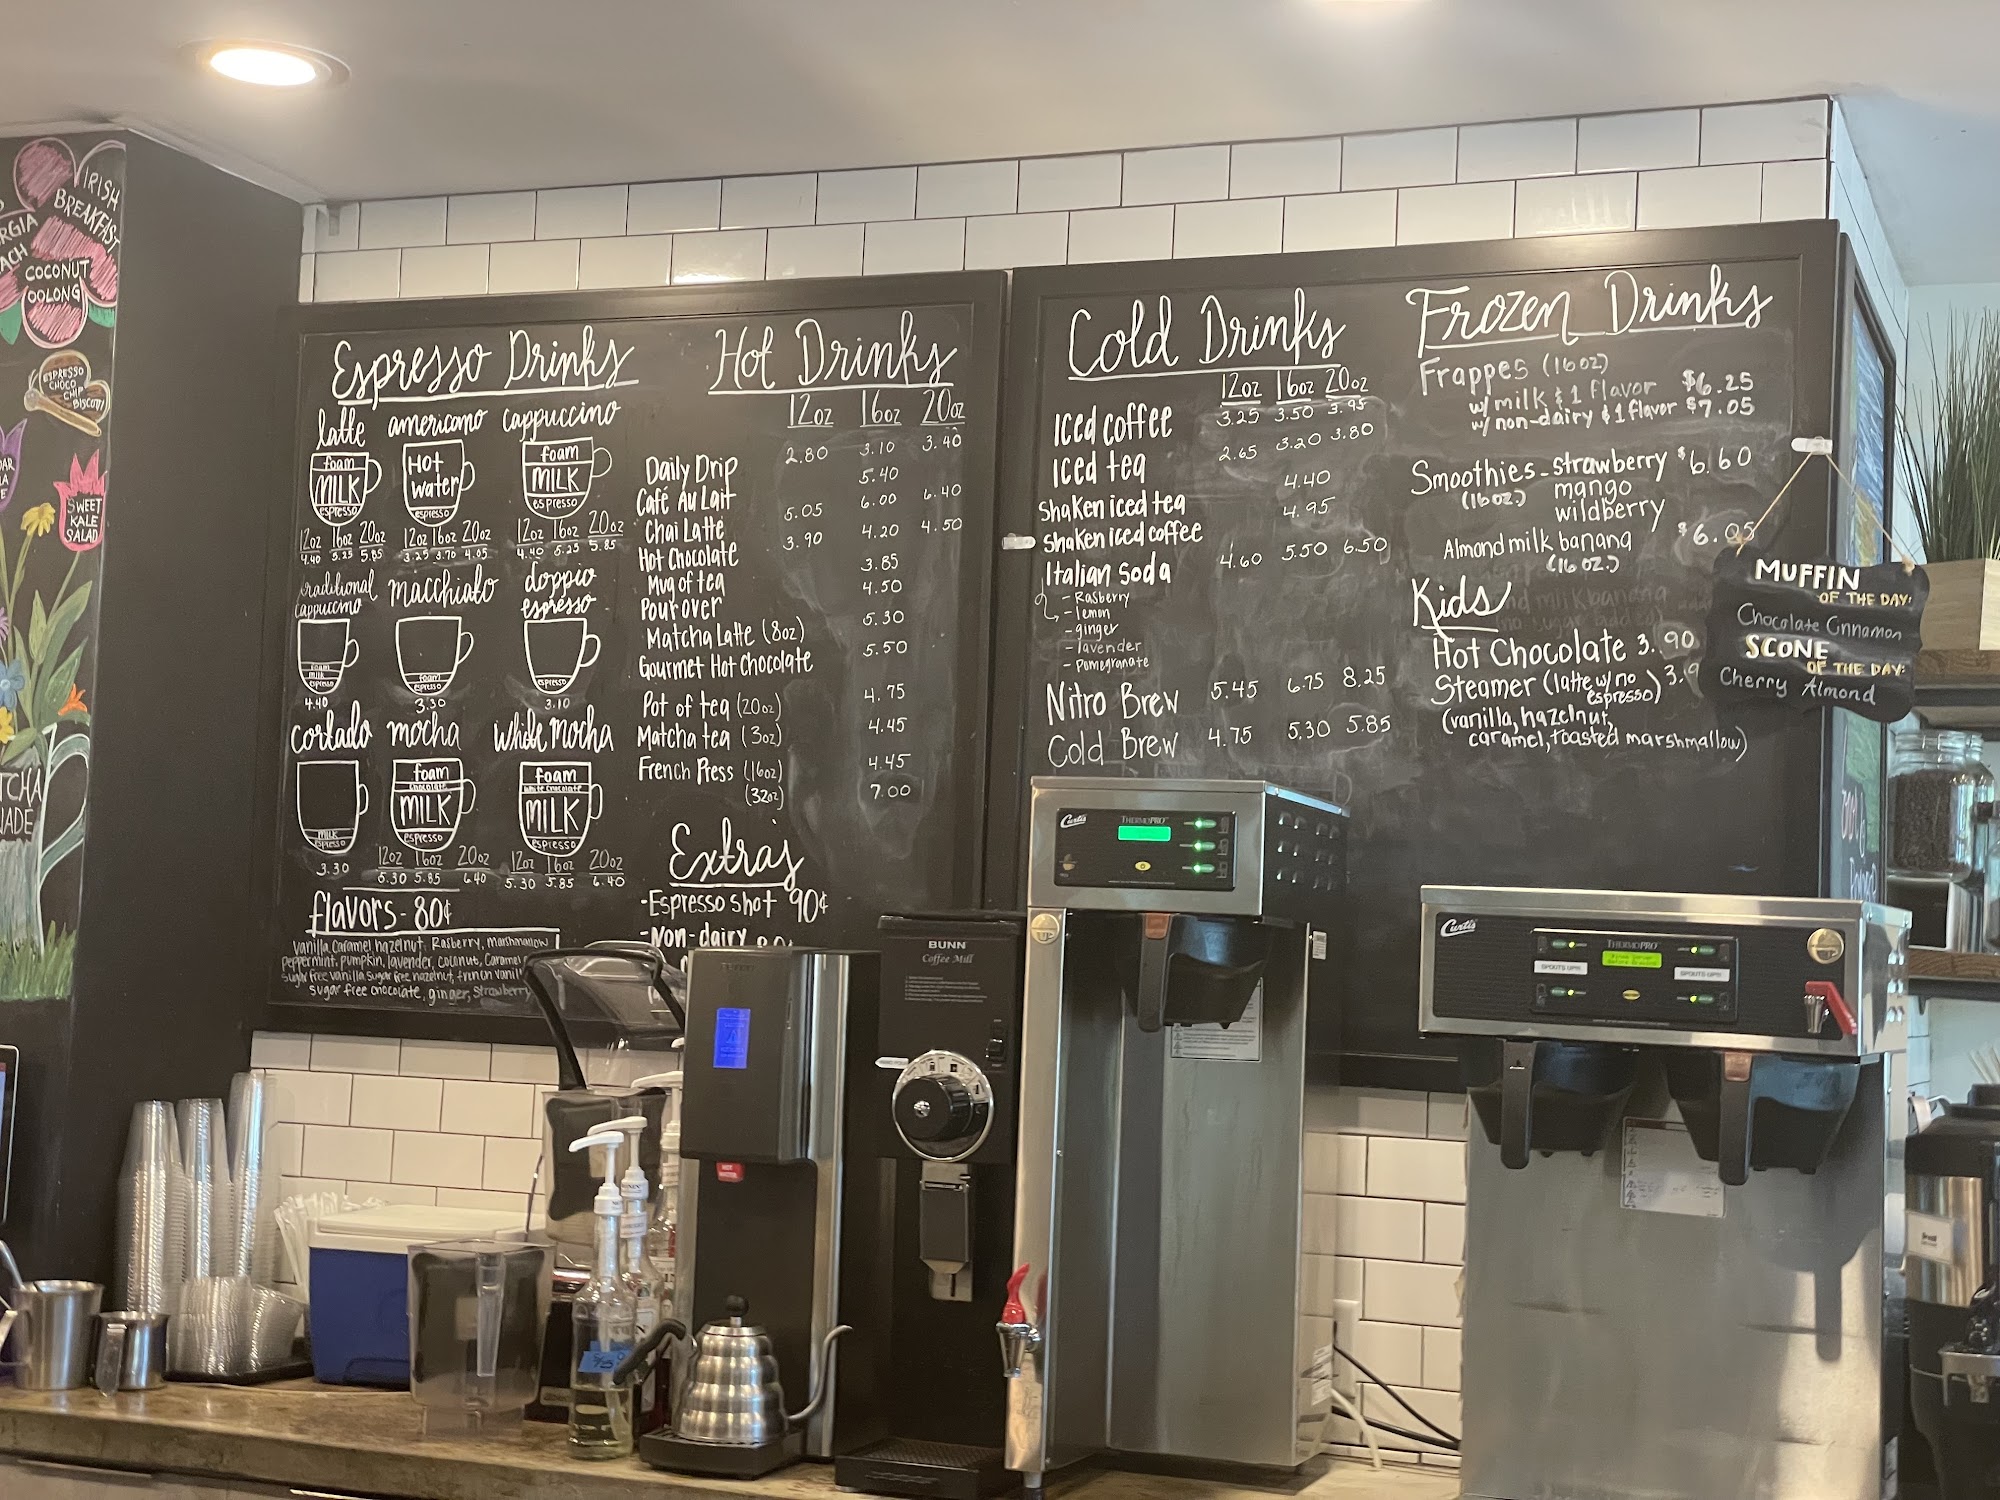 IRISH
BREAKFAST
COCONUT
OOLONG
ESPRESSO
CHOCO
CHIP
BISCOTTI
SWEET
KALE
SALAD
Espresso Drinks
latte americano cappuccino
foam
MILK
espresso
Hot
water
foam
MILK
espresso
12oz 16oz 20oz
4.40 5.25 5.85
12oz 16oz 20oz
3.25 3.70 4.05
12oz 16oz 20oz
4.40 5.25 5.85
traditional
cappuccino
macchiato
doppio
espresso
foam
milk
espresso
foam
espresso
espresso
4.40
3.30
3.10
cortado mocha white mocha
milk
espresso
foam
chocolate
MILK
espresso
foam
white chocolate
MILK
espresso
3.30
12oz 16oz 20oz
5.30 5.85 6.40
12oz 16oz 20oz
5.30 5.85 6.40
flavors - 80¢
vanilla, caramel, hazelnut, Rasberry, marshmallow
peppermint, pumpkin, lavender, coconut, caramel
sugar free vanilla, sugar free hazelnut, french vanill
sugar free chocolate, ginger, strawberry
Hot Drinks
12oz 16oz 20oz
Daily Drip 2.80 3.10 3.40
Café Au Lait 5.40
Chai Latte 5.05 6.00 6.40
Hot Chocolate 3.90 4.20 4.50
Mug of tea 3.85
Pour over 4.50
Matcha Latte (8oz) 5.30
Gourmet Hot Chocolate 5.50
Pot of tea (20oz) 4.75
Matcha tea (3oz) 4.45
French Press (16oz) 4.45
(32oz) 7.00
Extras
-Espresso shot 90¢
-Non-dairy
Cold Drinks
12oz 16oz 20oz
Iced coffee 3.25 3.50 3.95
Iced tea 2.65 3.20 3.80
Shaken iced tea 4.40
Shaken iced coffee 4.95
Italian Soda 4.60 5.50 6.50
- Rasberry
- lemon
- ginger
- lavender
- Pomegranate
Nitro Brew 5.45 6.75 8.25
Cold Brew 4.75 5.30 5.85
Frozen Drinks
Frappes (16oz)
w/ milk & 1 flavor $6.25
w/ non-dairy & 1 flavor $7.05
Smoothies - strawberry $6.60
(16oz.) mango
wildberry
Almond milk banana $6.05
(16oz.)
Kids
Hot Chocolate 3.90
Steamer (latte w/ no
espresso) 3.9
(vanilla, hazelnut,
caramel, toasted marshmallow)
MUFFIN
OF THE DAY:
Chocolate Cinnamon
SCONE
OF THE DAY:
Cherry Almond
BUNN
Coffee Mill
Curtis
THERMOPRO
Curtis
THERMOPRO
SPOUTS UP!!!
SPOUTS UP!!!
HOT
WATER